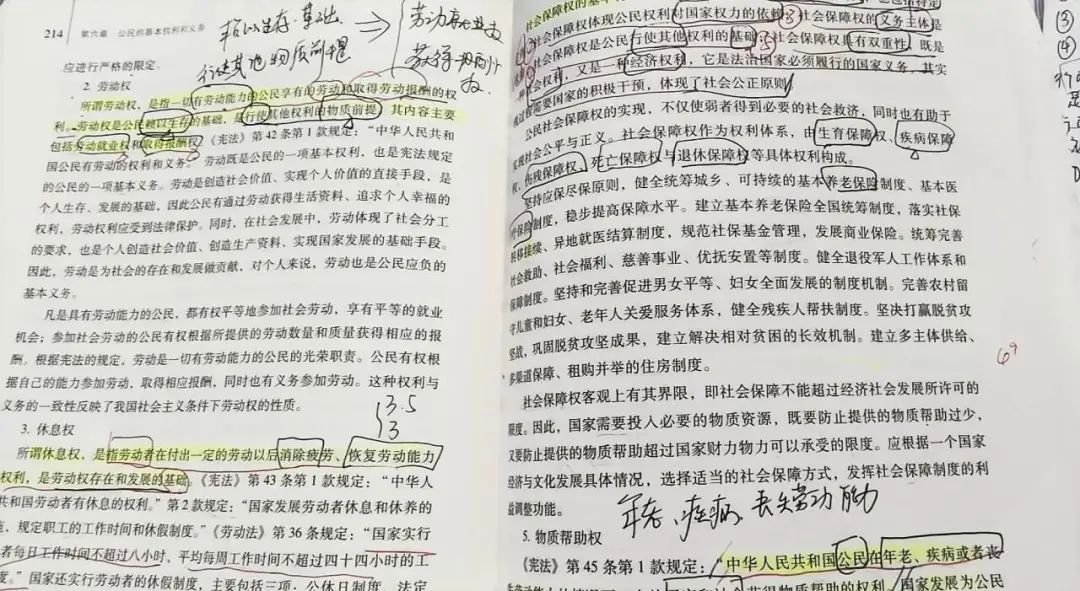 214 第六章 公民的基本权利和义务
赖以生存 基础
行使其他物质前提
劳动就业权
应进行严格的限定。
2. 劳动权
所谓劳动权，是指一切有劳动能力的公民享有的劳动和取得劳动报酬的权
利。劳动权是公民赖以生存的基础，是行使其他权利的物质前提，其内容主要
包括劳动就业权和取得报酬权。《宪法》第42条第1款规定：“中华人民共和
国公民有劳动的权利和义务。”劳动既是公民的一项基本权利，也是宪法规定
的公民的一项基本义务。劳动是创造社会价值、实现个人价值的直接手段，是
个人生存、发展的基础，因此公民有通过劳动获得生活资料、追求个人幸福的
权利，劳动权利应受到法律保护。同时，在社会发展中，劳动体现了社会分工
的要求，也是个人创造社会价值、创造生产资料、实现国家发展的基础手段。
因此，劳动是为社会的存在和发展做贡献，对个人来说，劳动也是公民应负的
基本义务。
凡是具有劳动能力的公民，都有权平等地参加社会劳动，享有平等的就业
机会；参加社会劳动的公民有权根据所提供的劳动数量和质量获得相应的报
酬。根据宪法的规定，劳动是一切有劳动能力的公民的光荣职责。公民有权根
据自己的能力参加劳动，取得相应报酬，同时也有义务参加劳动。这种权利与
义务的一致性反映了我国社会主义条件下劳动权的性质。
3.5
3
3. 休息权
所谓休息权，是指劳动者在付出一定的劳动以后消除疲劳、恢复劳动能力
权利，是劳动权存在和发展的基础。《宪法》第43条第1款规定：“中华人
共和国劳动者有休息的权利。”第2款规定：“国家发展劳动者休息和休养的
施，规定职工的工作时间和休假制度。”《劳动法》第36条规定：“国家实行
者每日工作时间不超过八小时、平均每周工作时间不超过四十四小时的工
度。”国家还实行劳动者的休假制度，主要包括三项：公休日制度、法定
社会保障权的基本
社会保障权体现公民权利对国家权力的依赖 ③社会保障权的义务主体是
社会保障权是公民行使其他权利的基础 ⑤社会保障权具有双重性，既是
权利，又是一种经济权利，它是法治国家必须履行的国家义务，其实
需要国家的积极干预，体现了社会公正原则
公民社会保障权的实现，不仅使弱者得到必要的社会救济，同时也有助于
实现社会公平与正义。社会保障权作为权利体系，由生育保障权、疾病保障
权、伤残保障权、死亡保障权与退休保障权等具体权利构成。
坚持应保尽保原则，健全统筹城乡、可持续的基本养老保险制度、基本医
疗保险制度，稳步提高保障水平。建立基本养老保险全国统筹制度，落实社保
转移接续、异地就医结算制度，规范社保基金管理，发展商业保险。统筹完善
社会救助、社会福利、慈善事业、优抚安置等制度。健全退役军人工作体系和
保障制度。坚持和完善促进男女平等、妇女全面发展的制度机制。完善农村留
守儿童和妇女、老年人关爱服务体系，健全残疾人帮扶制度。坚决打赢脱贫攻
坚战，巩固脱贫攻坚成果，建立解决相对贫困的长效机制。建立多主体供给、
多渠道保障、租购并举的住房制度。
社会保障权客观上有其界限，即社会保障不能超过经济社会发展所许可的
限度。因此，国家需要投入必要的物质资源，既要防止提供的物质帮助过少，
又要防止提供的物质帮助超过国家财力物力可以承受的限度。应根据一个国家
经济与文化发展具体情况，选择适当的社会保障方式，发挥社会保障制度的利
益调整功能。
年老、疾病、丧失劳动能力
5. 物质帮助权
《宪法》第45条第1款规定：“中华人民共和国公民在年老、疾病或者丧
获得物质帮助的权利。国家发展为公民
③
④